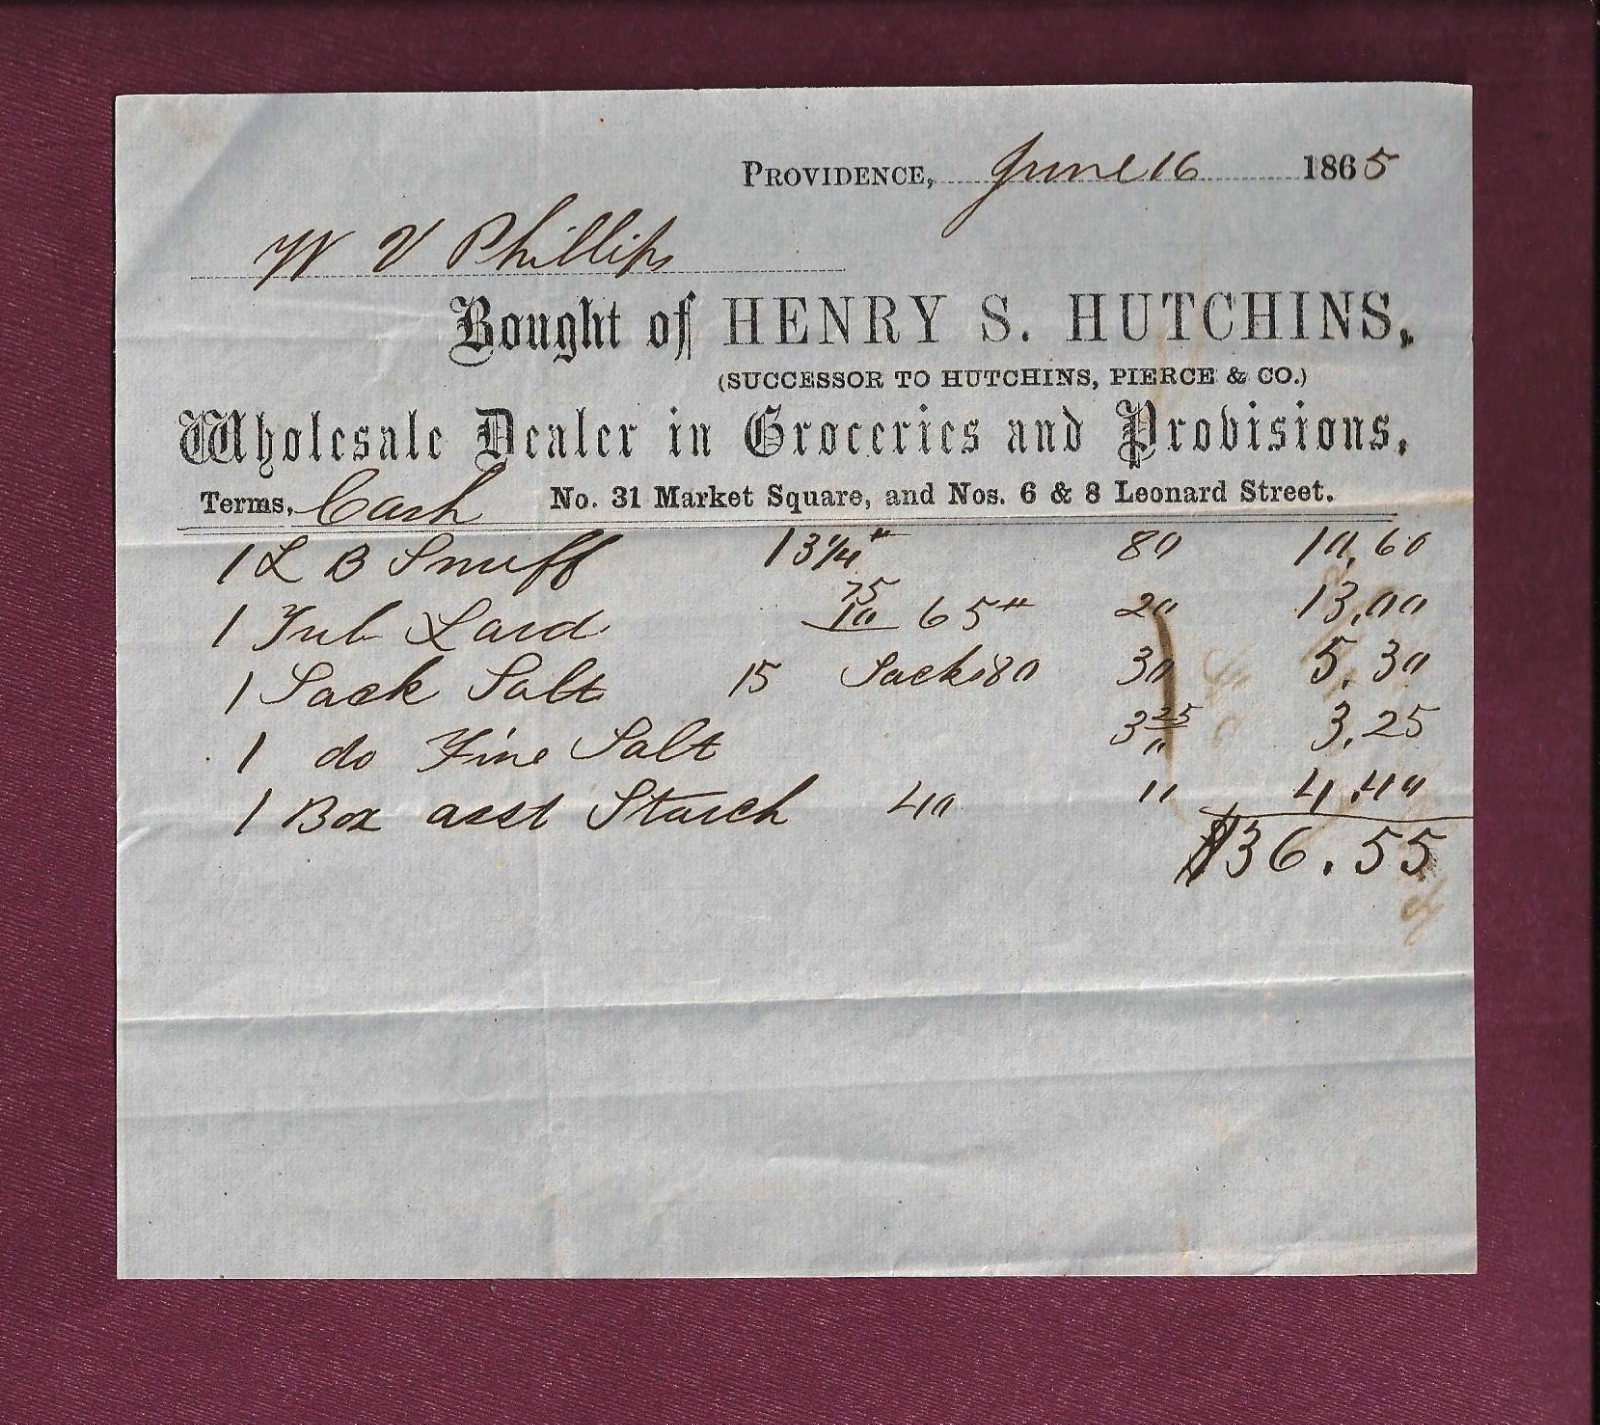 PROVIDENCE, June 16 1865
W V Phillips
Bought of HENRY S. HUTCHINS,
(SUCCESSOR TO HUTCHINS, PIERCE & CO.)
Wholesale Dealer in Groceries and Provisions,
Terms, Cash No. 31 Market Square, and Nos. 6 & 8 Leonard Street.
1 L B Snuff 13 1/4 # 80 10,60
1 Tub Lard 75 10 65 # 20 13,00
1 Sack Salt 15 Sack 80 30 5.30
1 do Fine Salt 3 25 3.25
1 Box asst Starch 40 11 4.40
$36.55